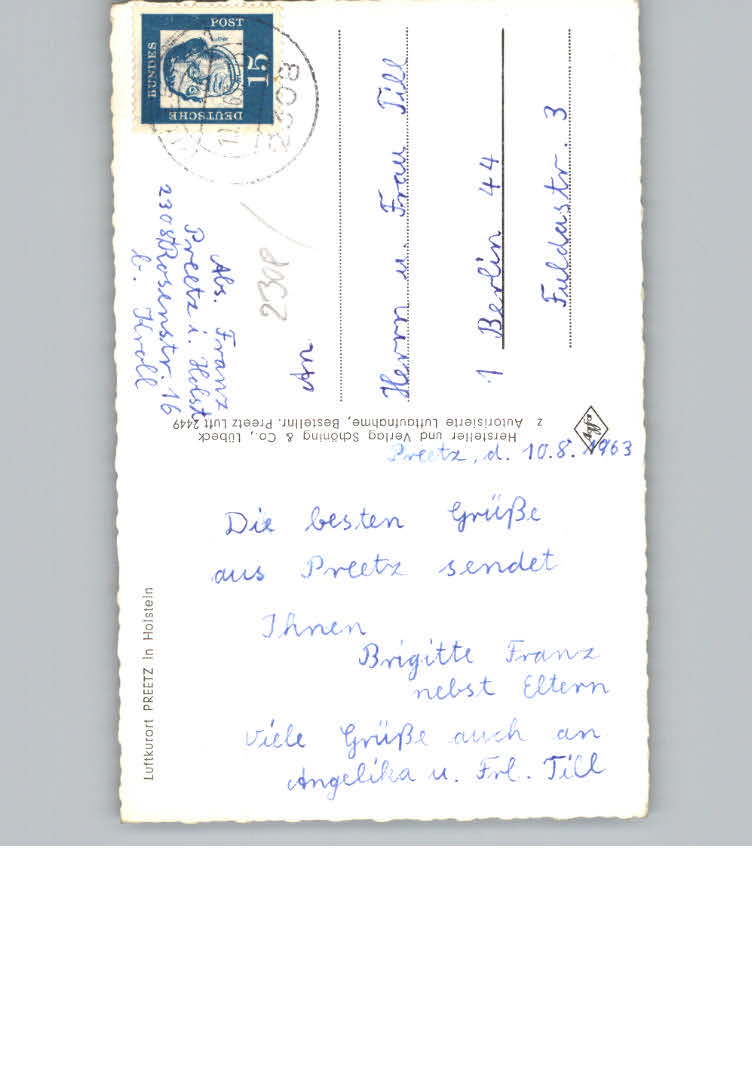 Luftkurort PREETZ in Holstein
Preetz, d. 10.8.1963
Die besten Grüße
aus Preetz sendet
Ihnen
Brigitte Franz
nebst Eltern
Viele Grüße auch an
Angelika u. Frl. Till
Hersteller und Verlag Schöning & Co., Lübeck
Z Autorisierte Luftaufnahme, Bestellnr. Preetz Luft 2449
Abs. Franz
Preetz i. Holst
2308 Rosenstr. 16
b. Kroll
2308
DEUTSCHE
BUNDES
POST
15
2308
An
Herrn u. Frau Till
1 Berlin 44
Fuldastr. 3